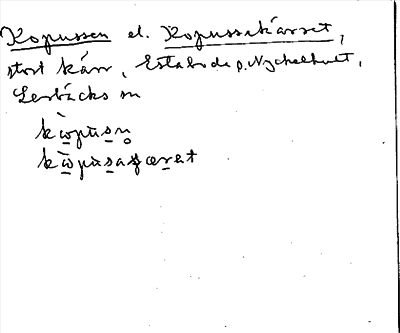 Kopussen el. Kopussakärret,
stort kärr, Estabode o. Nyckelhult,
Lerbäcks sn
kòpusn̥
kòpusaɟæret